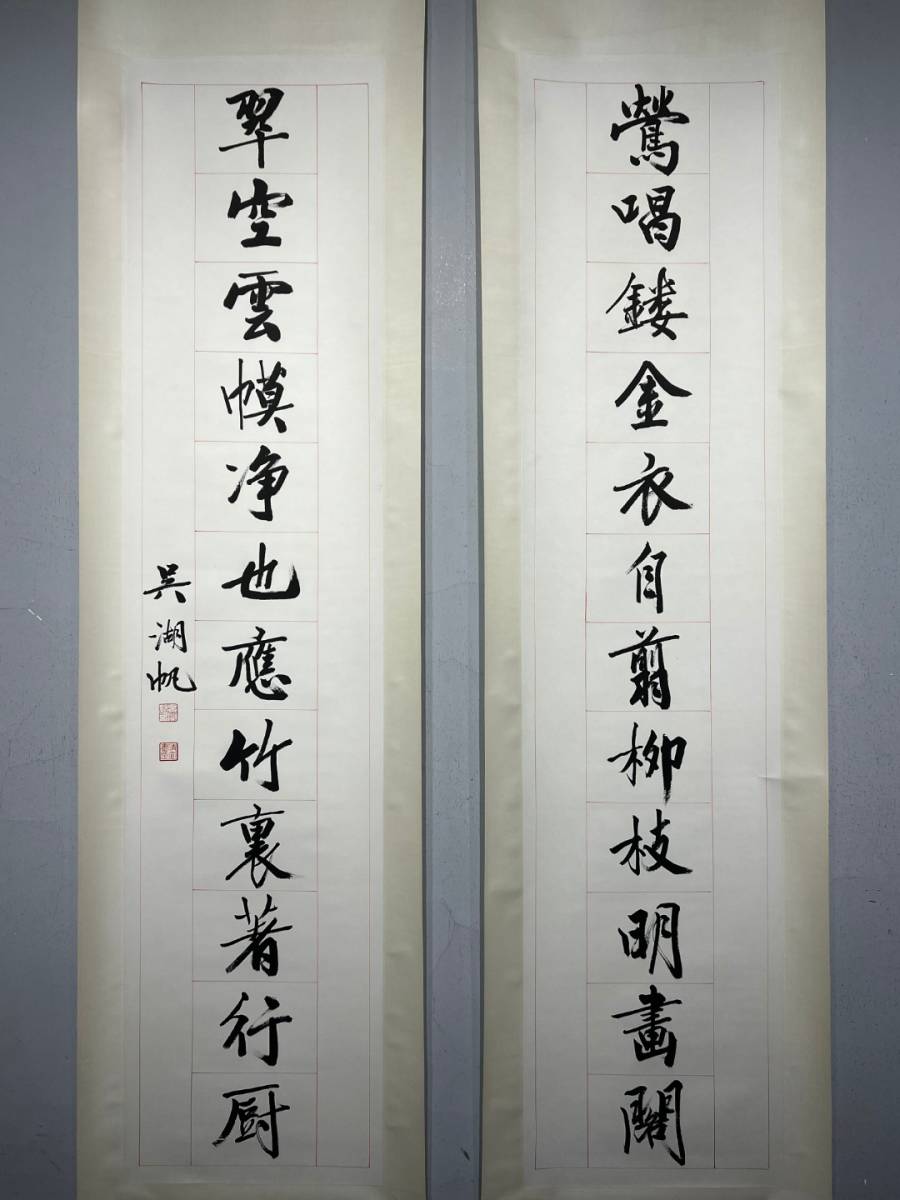 鶯喝鏤金衣自翦柳枝明畫閣
翠空雲幙净也應竹裏著行厨
吳湖帆